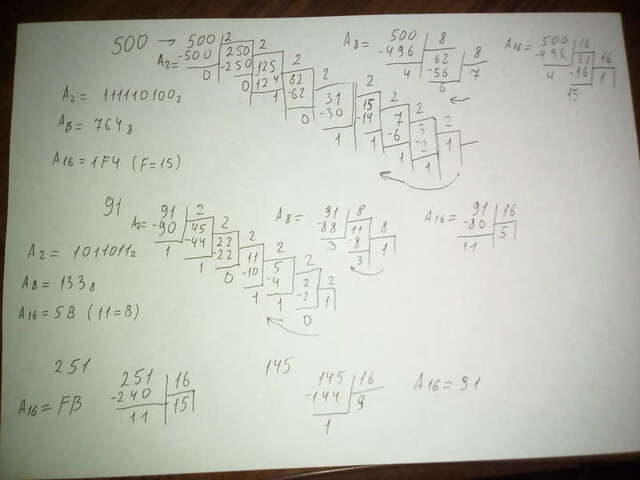 500 → 500 | 2
A₂= -500 | 250 | 2
0 -250 | 125 | 2
0 124 | 62 | 2
1 -62 | 31 | 2
0 -30 | 15 | 2
1 -14 | 7 | 2
1 -6 | 3 | 2
1 -2 | 1
1
A₈= 500 | 8
-496 | 62 | 8
4 -56 | 7
6
A₁₆= 500 | 16
-496 | 31 | 16
4 -16 | 1
15
A₂ = 111110100₂
A₈ = 764₈
A₁₆ = 1F4 (F=15)
91
A₂= 91 | 2
-90 | 45 | 2
1 -44 | 22 | 2
1 -22 | 11 | 2
0 -10 | 5 | 2
1 -4 | 2 | 2
1 -2 | 1
0
A₈= 91 | 8
-88 | 11 | 8
3 -8 | 1
3
A₁₆= 91 | 16
-80 | 5
11
A₂ = 1011011₂
A₈ = 133₈
A₁₆ = 5B (11=B)
251
251 | 16
-240 | 15
11
A₁₆ = FB
145
145 | 16
-144 | 9
1
A₁₆ = 91